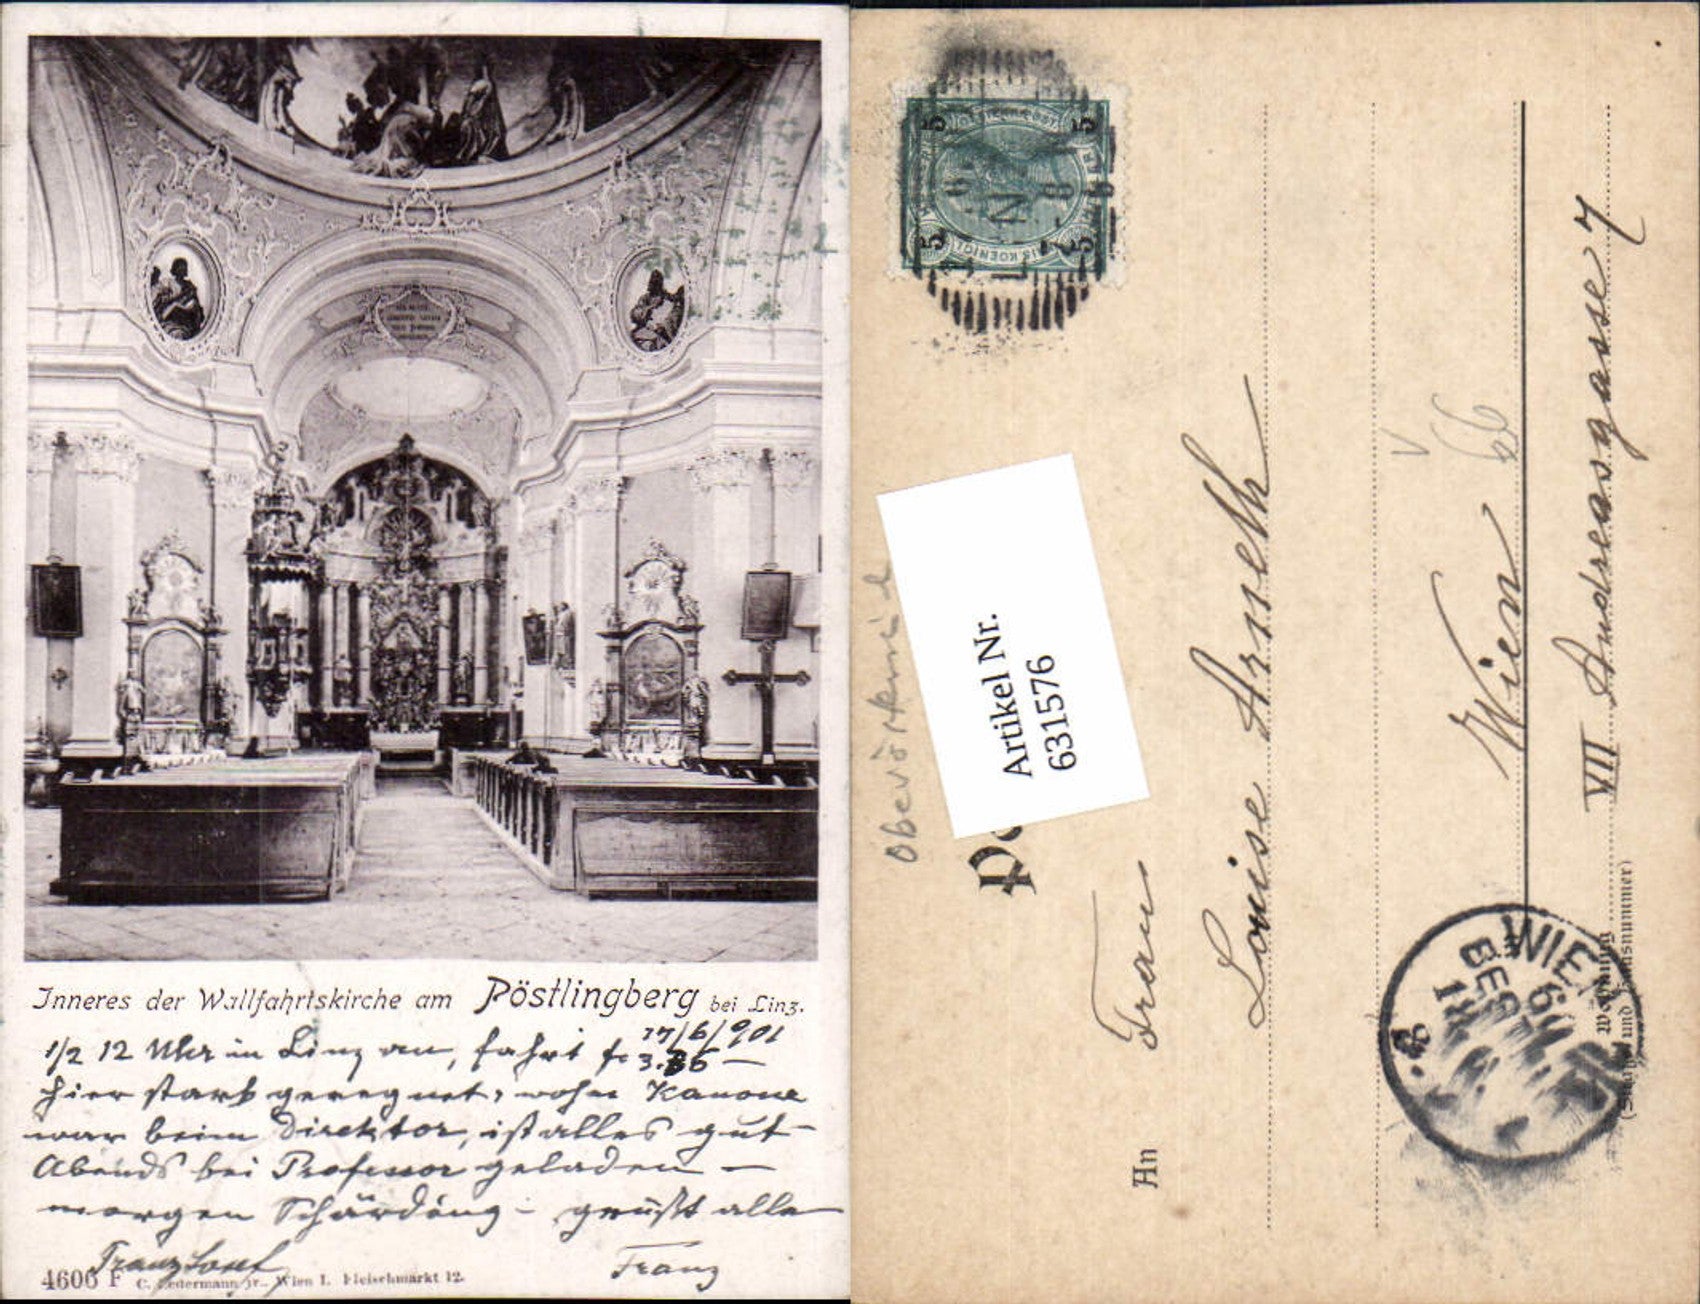 Inneres der Wallfahrtskirche am Pöstlingberg bei Linz.
17/6/901
1/2 12 Uhr in Linz an, fahrt 3.36 —
hier stark geregnet, wohne Kanone
war beim Direktor, ist alles gut
Abends bei Professor geladen —
morgen Schärding – grüßt alle
Franz Josef Franz
4606 F C. Ledermann jr., Wien I. Fleischmarkt 12.
5 5
5 5
LINZ
Artikel Nr.
631576
Po
An
Frau
Louise Arneth
Wien
66
VII Andreasgasse 7
Wohnung
(Straße und Hausnummer)
WIEN
BES